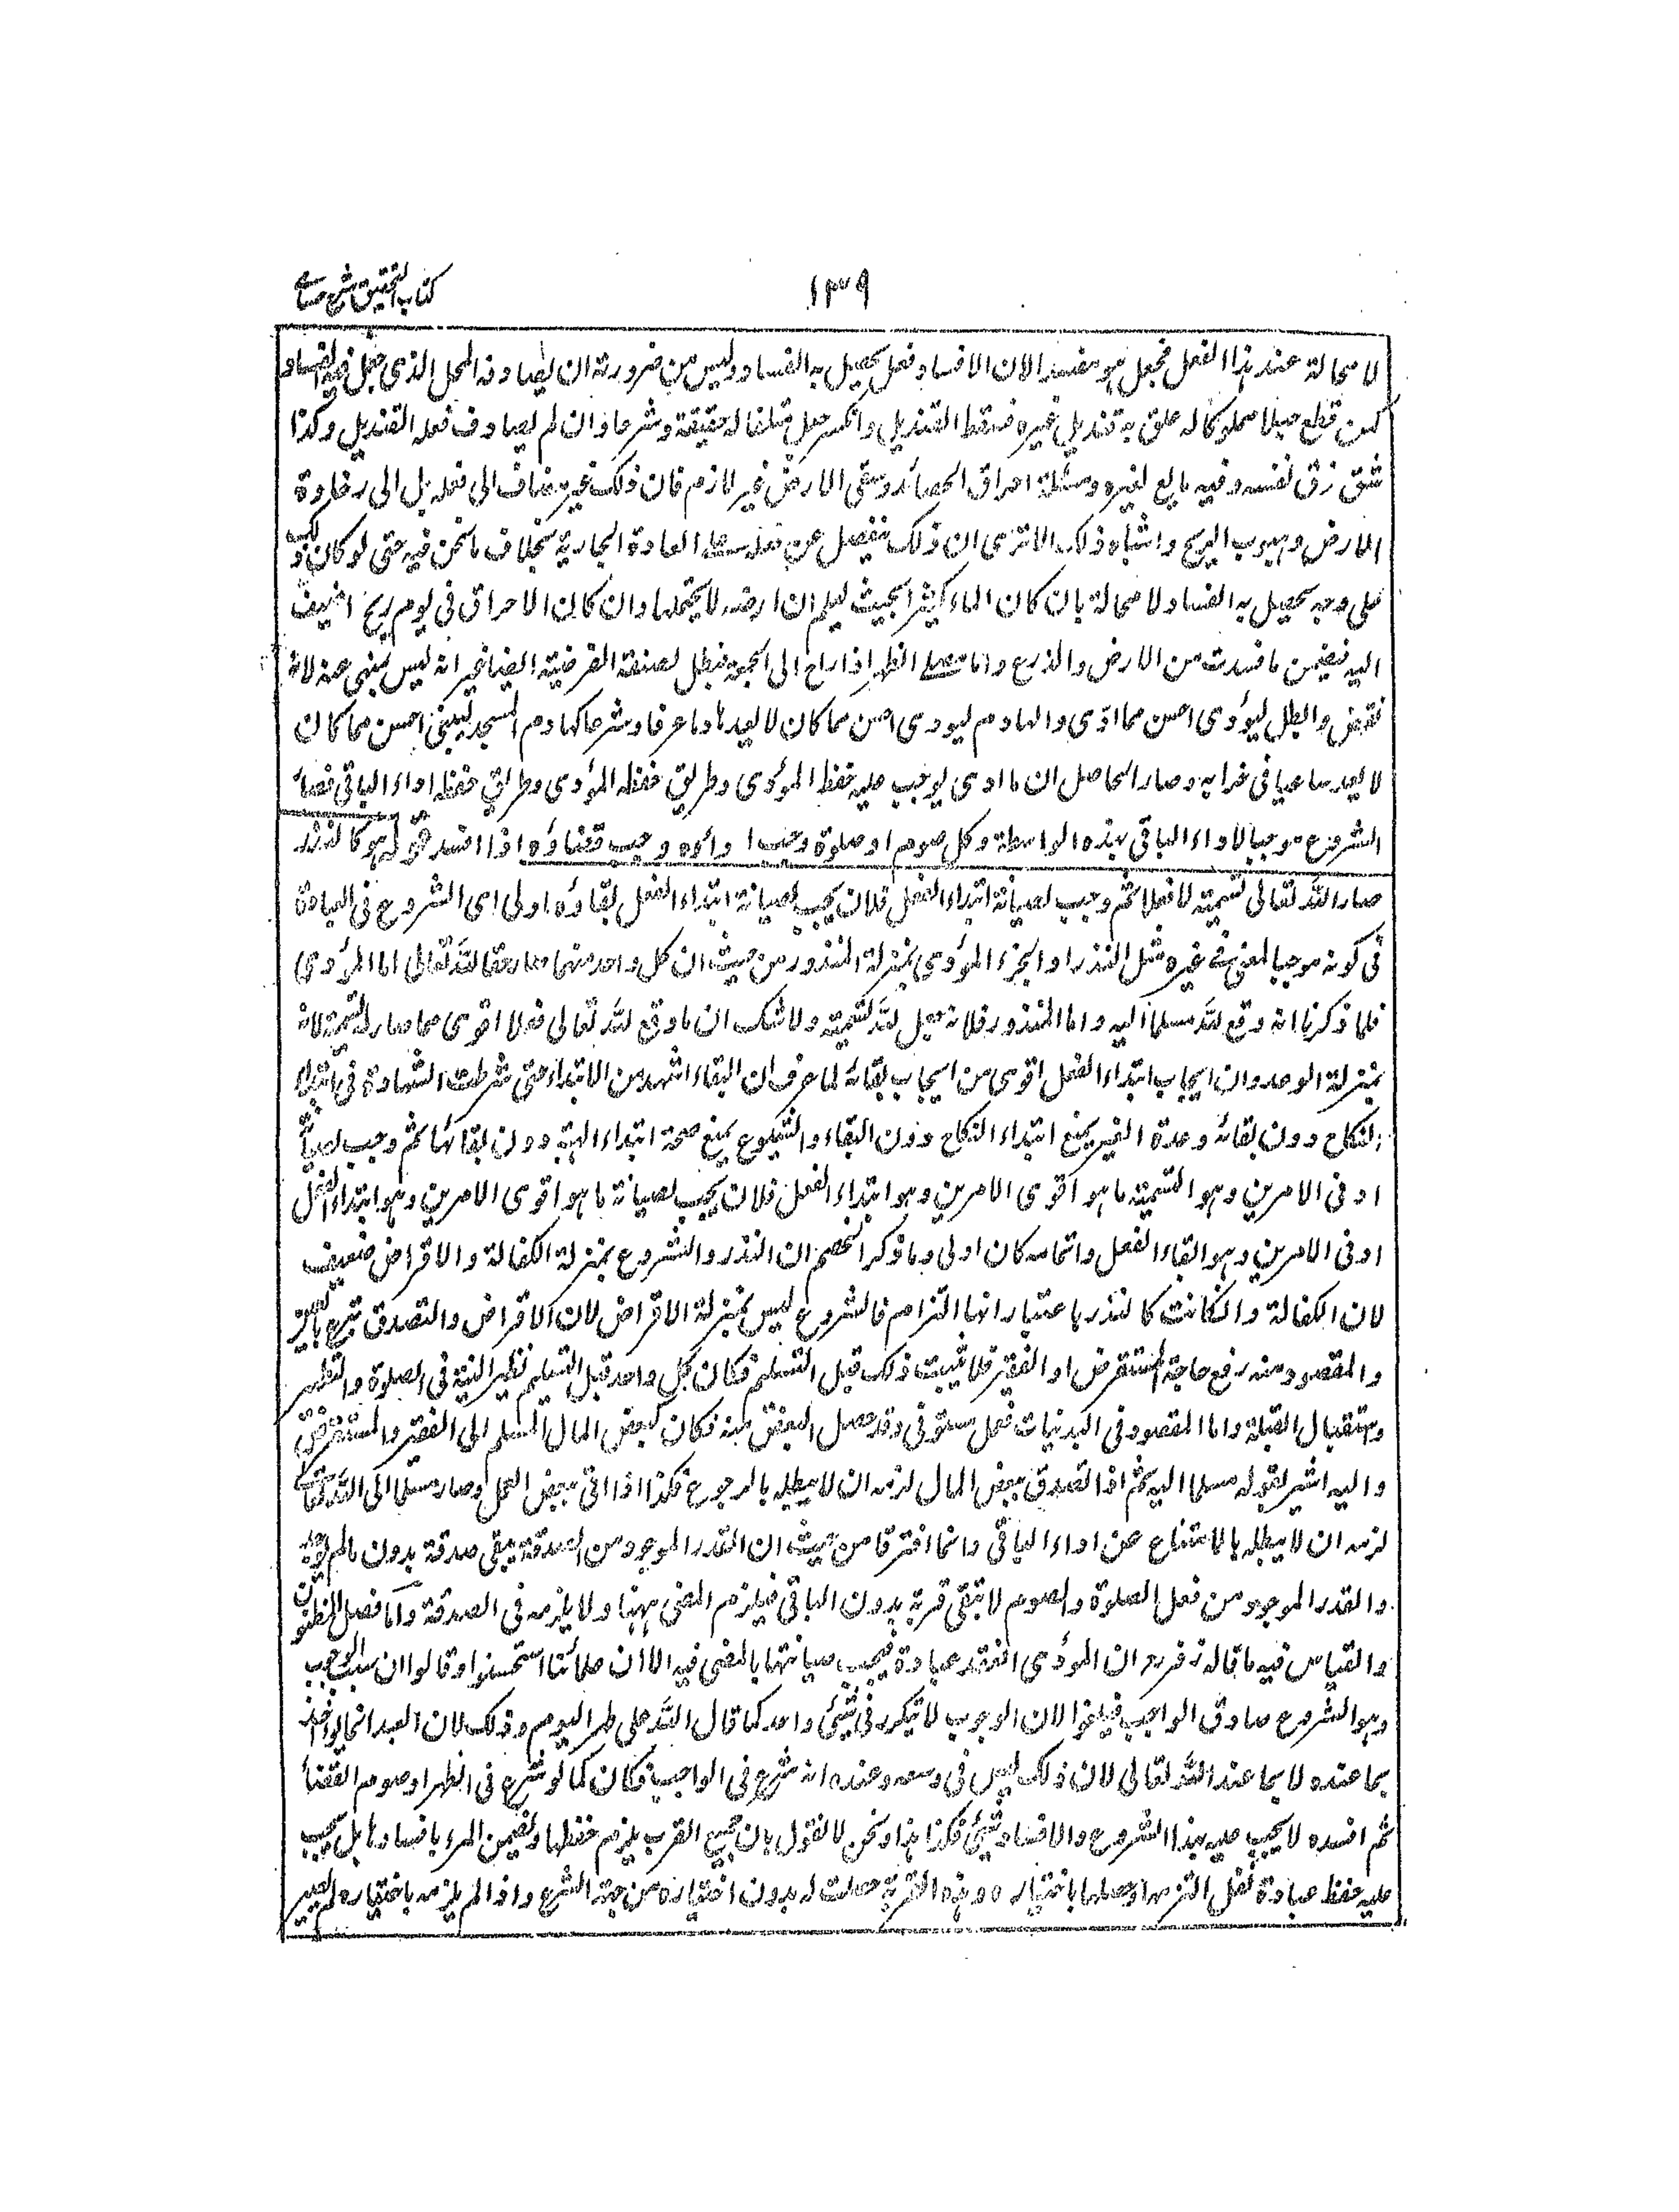 كتاب التحقيق شرح حسامى
١٣٩
لا محالة عند هذا الفعل فجعل هو مفسدا لان الافساد فعل يحصل به الفساد وليس من ضرورته ان يصادف المحل الذى جعل فيه الفساد
كمن قطع حبلا مملوكا له علق به قنديل غيره فسقط القنديل وانكسر جعل متلفا له حقيقة وشرعا وان لم يصادف فعله القنديل وكذا
شق زق نفسه وفيه مايع لغيره ومسئلة احراق الحصائد وسقى الارض غير لازم فان ذلك غير مضاف الى فعله بل الى رخاوة
الارض وهبوب الريح واشباه ذلك الا ترى ان ذلك ينفصل عن فعله على العادة الجارية بخلاف ما نحن فيه حتى لو كان ذلك
على وجه يحصل به الفساد لا محالة بان كان الماء كثيرا بحيث يعلم ان ارضه لا يحتملها وان كان الاحراق فى يوم ريح اضيف
اليه فيضمن ما فسدت من الارض والزرع واما مصلى الظهر اذا راح الى الجمعة فيبطل لصفة الفرضية ايضا غير انه ليس بمنهى عنه لانه
نقض وابطل ليؤدى احسن مما ادى والهادم ليودى احسن مما كان لا يعد هادما عرفا وشرعا كهادم المسجد ليبنى احسن مما كان
لا يعد ساعيا فى خرابه وصار الحاصل ان ما ادى يوجب عليه حفظ المؤدى وطريق حفظه المؤدى وطريق حفظه اداء الباقى فصار
الشروع موجبا لاداء الباقى بهذه الواسطة وكل صوم او صلوة وجب اداؤه وجب قضاؤه اذا افسد قوله هو كالنذر
صار لله تعالى تسمية لا فعلا ثم وجب لصيانة ابتداء الفعل فلان يجب لصيانة ابتداء الفعل بقاؤه اولى اى الشروع فى العبادة
فى كونه موجبا لمعنى فى غيره مثل النذر او الجزء المؤدى بمنزلة المنذور من حيث ان كل واحد منهما صار حقا لله تعالى اما المؤدى
فلما ذكرنا انه وقع لله مسلما اليه واما المنذور فلانه جعل لله تسمية ولا شك ان ما وقع لله تعالى فعلا اقوى مما صار له تسمية لانه
بمنزلة الوعد وان ايجاب ابتداء الفعل اقوى من ايجاب بقائه لما عرف ان البقاء اسهل من الابتداء حتى شرطت الشهادة فى ابتداء
النكاح دون بقائه وعدة الغير يمنع ابتداء النكاح دون البقاء والشيوع يمنع صحة ابتداء الهبة دون بقائها ثم وجب لصيانة
ادنى الامرين وهو التسمية ما هو اقوى الامرين وهو ابتداء الفعل فلان يجب لصيانة ما هو اقوى الامرين وهو ابتداء الفعل
ادنى الامرين وهو ابقاء الفعل واتمامه كان اولى وما ذكر الخصم ان النذر والشروع بمنزلة الكفالة والاقراض ضعيف
لان الكفالة وان كانت كالنذر باعتبار انها التزام فالشروع ليس بمنزلة الاقراض لان الاقراض والتصدق تبرع بالعين
والمقصود منه رفع حاجة المستقرض او الفقير فلا يثبت ذلك قبل التسليم فكان كل واحد قبل التسليم نظير النية فى الصلوة والتطهير
واستقبال القبلة واما المقصود فى البدنيات فعمل مستوفى وقد حصل البعض منه فكان كبعض المال المسلم الى الفقير والمستقرض
واليه اشير بقوله مسلما اليه ثم اذا تصدق ببعض المال لزمه ان لا يبطله بالرجوع فكذا اذا اتى ببعض العمل وصار مسلما الى الله تعالى
لزمه ان لا يبطله بالامتناع عن اداء الباقى وانما افترقا من حيث ان القدر الموجود من الصدقة يبقى صدقة بدون ما لم يوجد
والقدر الموجود من فعل الصلوة والصوم لا تبقى قربة بدون الباقى فيلزم المضى ههنا ولا يلزمه فى الصدقة واما فصل المظنون
والقياس فيه ما قاله زفر رح ان المؤدى انعقد عبادة فيجب صيانتها بالمضى فيه الا ان علمائنا استحسنوا وقالوا ان سبب الوجوب
وهو الشروع صادق الواجب فيلغوا لان الوجوب لا يتكرر فى شئ واحد كما قال لله على ظهر اليوم وذلك لان العبد انما يؤاخذ
بما عنده لا بما عند الله تعالى لان ذلك ليس فى وسعه وعنده انه شرع فى الواجب فكان كما لو شرع فى الظهر او صوم القضاء
ثم افسده لا يجب عليه بهذا الشروع والافساد شئ فكذا هذا ونحن لا نقول بان جميع القرب يلزم حفظها ويضمن المرء بافسادها بل يجب
عليه حفظ عبادة نفل التزمها وحصلها باختياره وهذه القربة حصلت له بدون اختياره من جهة الشرع واذا لم يلزمه باختياره لم يصير